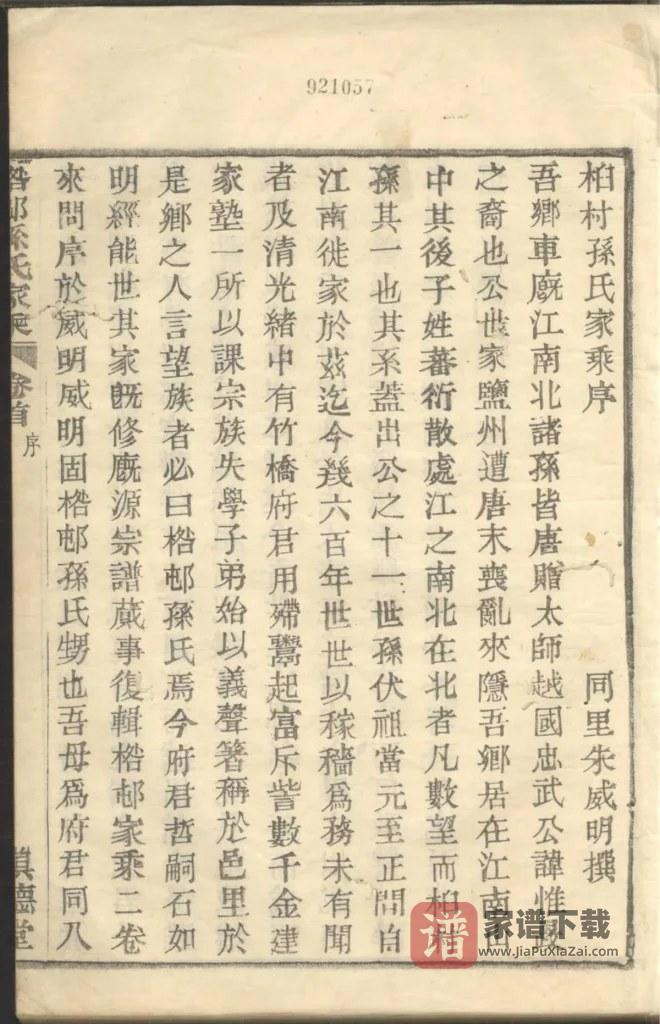 921057
桕村孫氏家乘序 同里朱威明撰
吾鄉車廐江南北諸孫皆唐贈太師越國忠武公諱惟
之裔也公世家鹽州遭唐末喪亂來隱吾鄉居在江南山
中其後子姓蕃衍散處江之南北在北者凡數望而桕村
孫其一也其系蓋出公之十一世孫伏祖當元至正間自
江南徙家於茲迄今幾六百年世世以稼穡爲務未有聞
者及清光緒中有竹橋府君用殢鬻起富斥訾數千金建
家塾一所以課宗族失學子弟始以義聲箸稱於邑里於
是鄉之人言望族者必曰桰邨孫氏焉今府君哲嗣石如
明經能世其家旣修廐源宗譜蕆事復輯桰邨家乘二卷
來問序於威明威明固桰邨孫氏甥也吾母爲府君同八
桰邨孫氏家乘 卷首 序 眞德堂
谱 家谱下载
www.JiaPuXiaZai.com